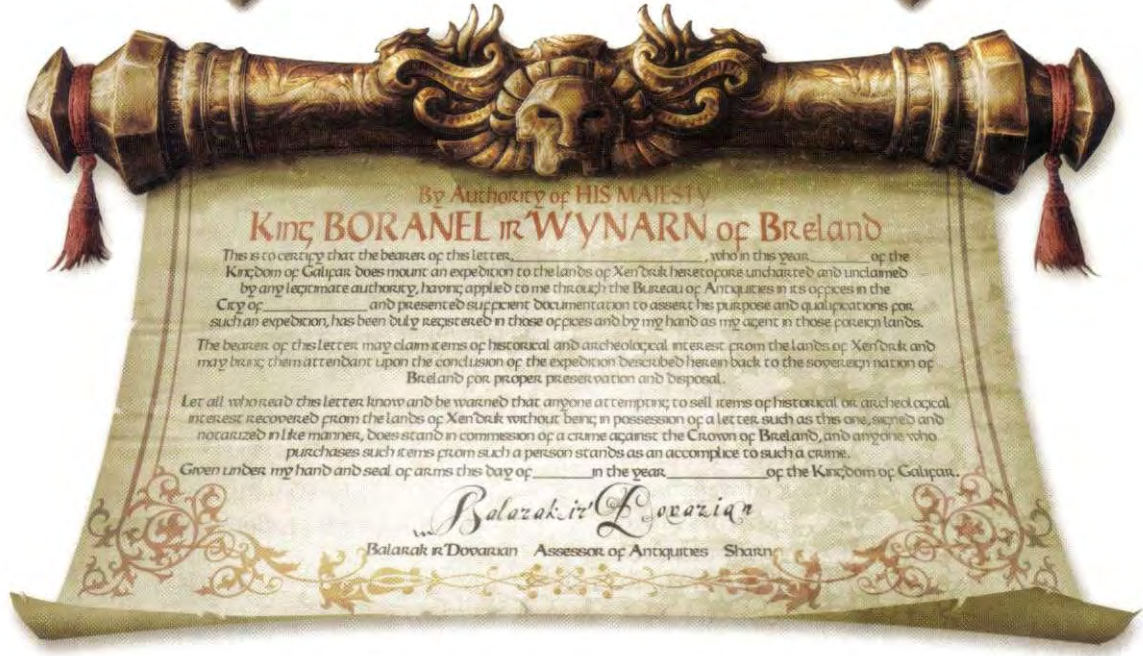 By Authority of HIS MAJESTY
King BORANEL ir'WYNARN of Breland
This is to certify that the bearer of this letter,____________________, who in this year________of the
Kingdom of Galifar does mount an expedition to the lands of Xen'drik heretofore uncharted and unclaimed
by any legitimate authority, having applied to me through the Bureau of Antiquities in its offices in the
City of______________and presented sufficient documentation to assert his purpose and qualifications for
such an expedition, has been duly registered in those offices and by my hand as my agent in those foreign lands.
The bearer of this letter may claim items of historical and archeological interest from the lands of Xen'drik and
may bring them attendant upon the conclusion of the expedition described herein back to the sovereign nation of
Breland for proper preservation and disposal.
Let all who read this letter know and be warned that anyone attempting to sell items of historical or archeological
interest recovered from the lands of Xen'drik without being in possession of a letter such as this one, signed and
notarized in like manner, does stand in commission of a crime against the Crown of Breland, and anyone who
purchases such items from such a person stands as an accomplice to such a crime.
Given under my hand and seal of arms this day of_______in the year__________of the Kingdom of Galifar.
Balarak ir'Dovarian
Balarak ir'Dovarian Assessor of Antiquities Sharn